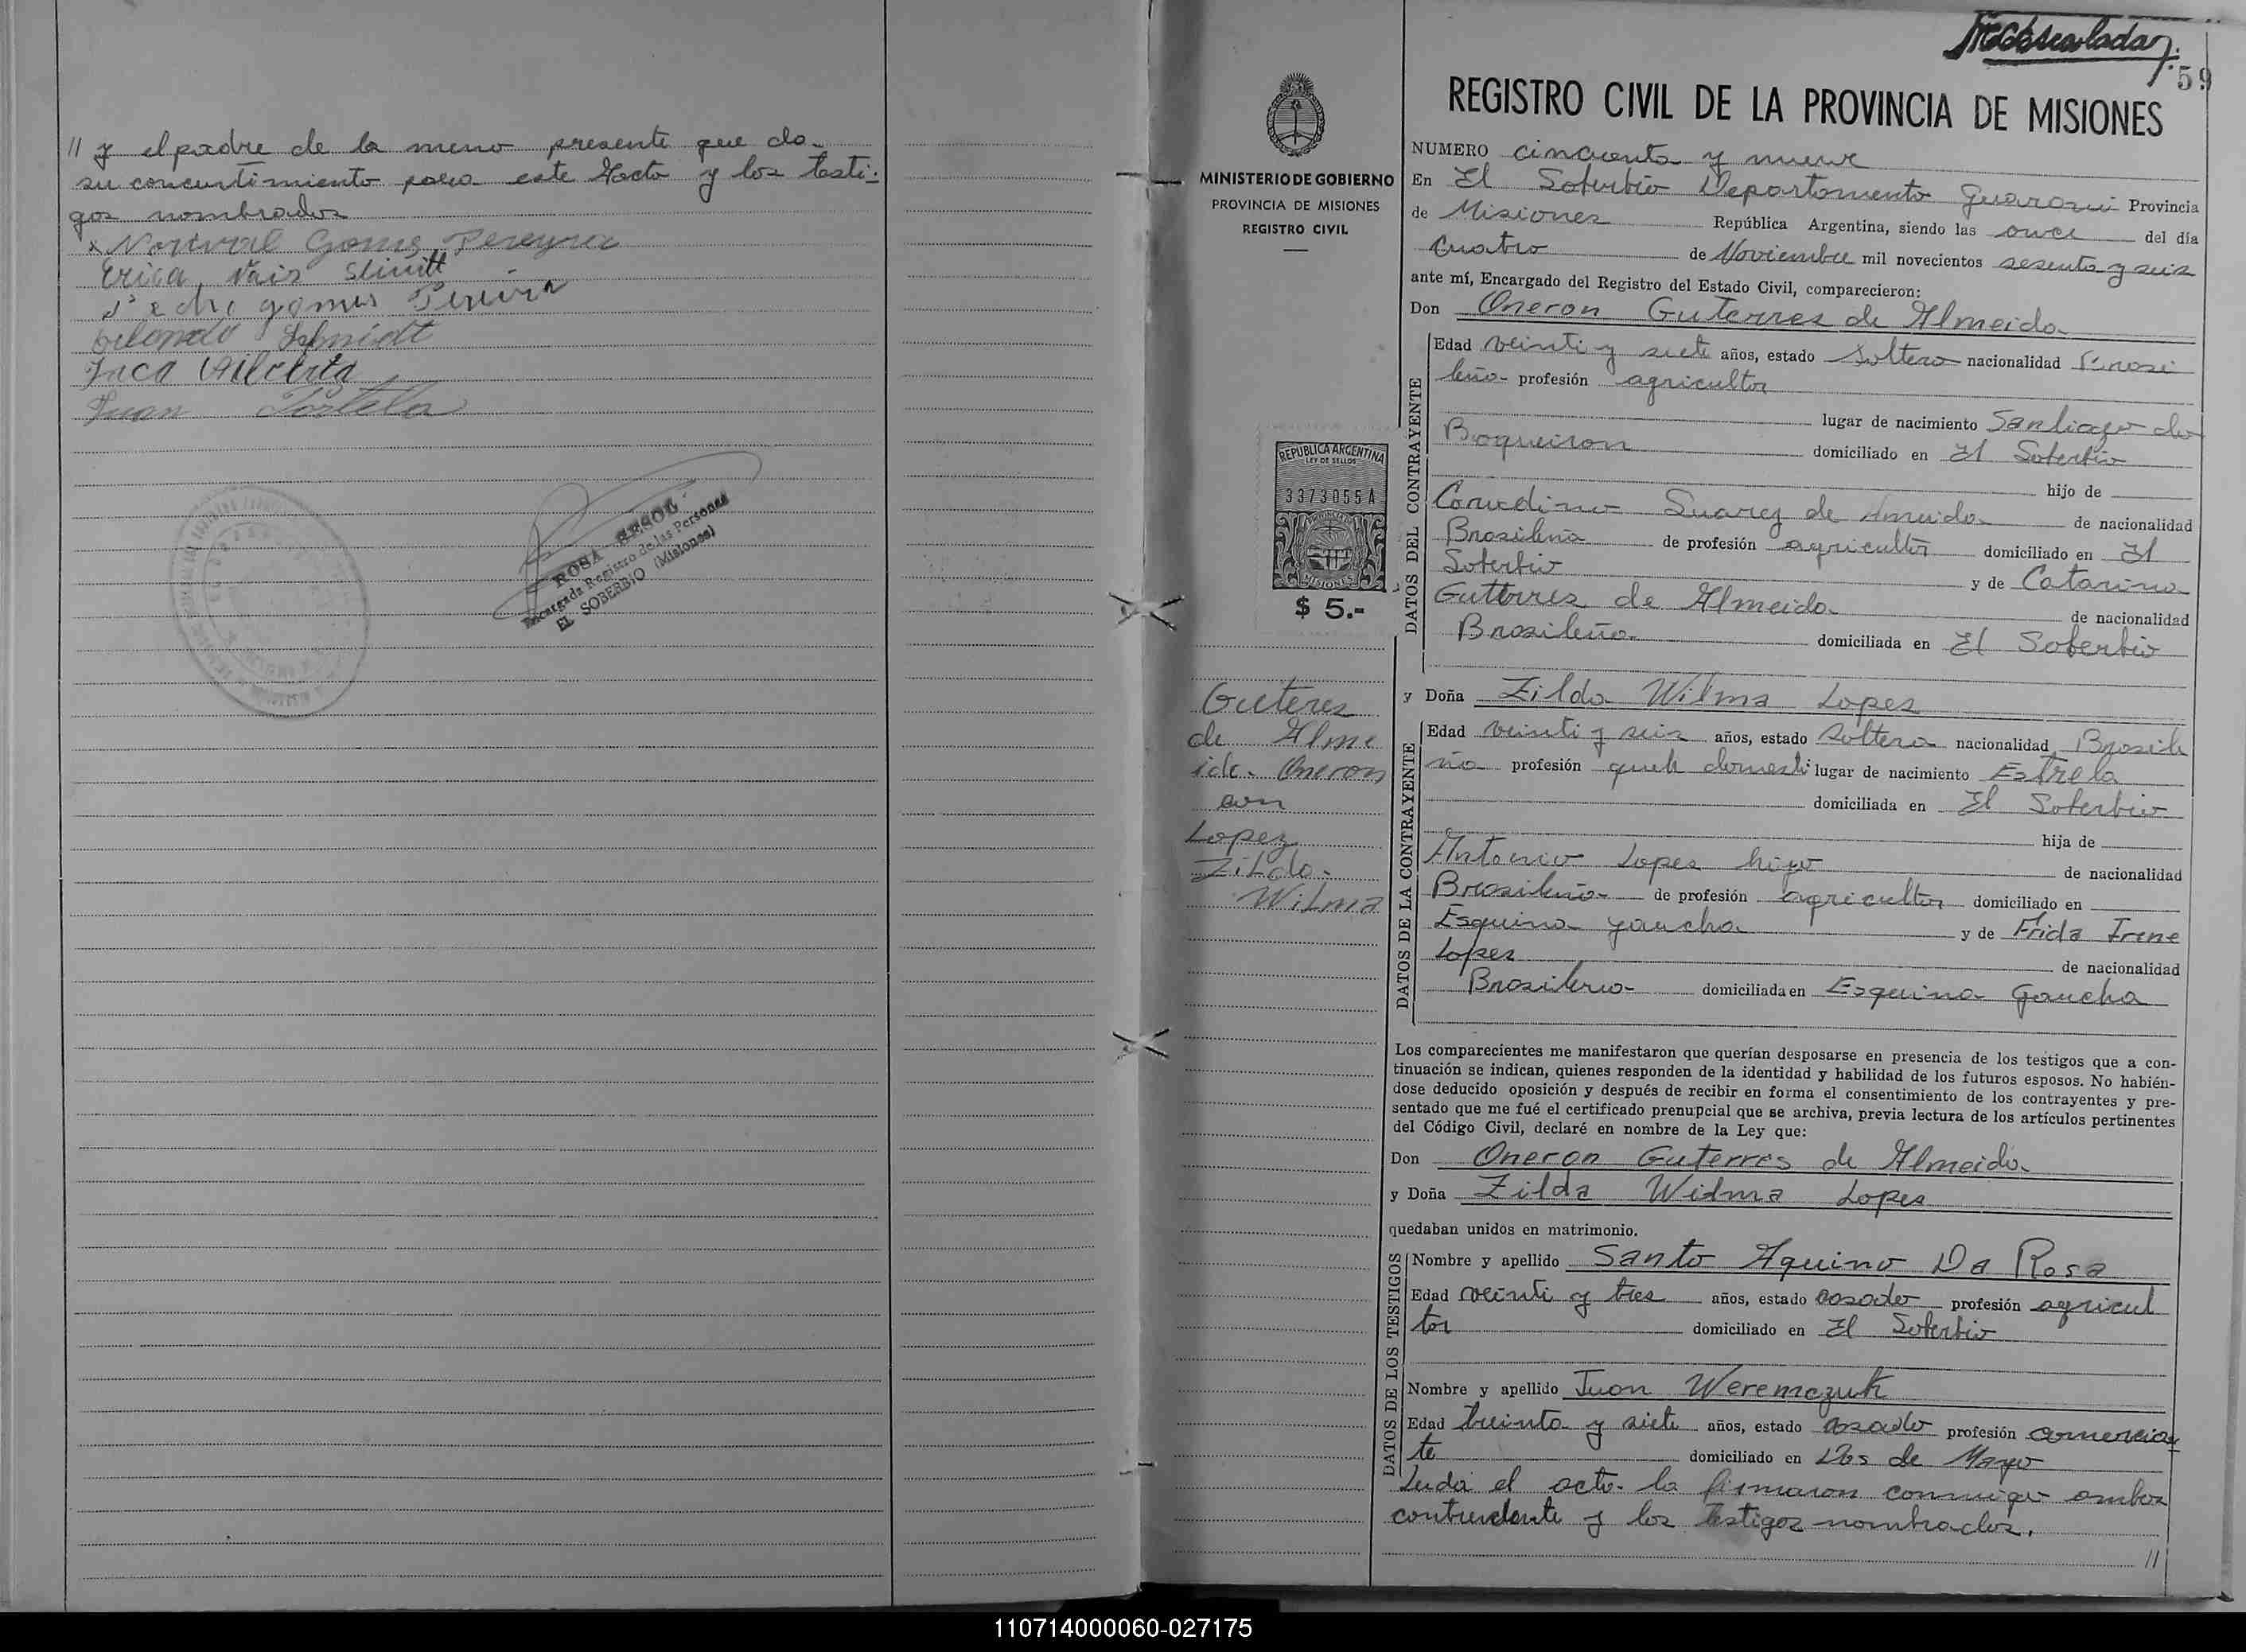 // y el padre de la meno presente que da
su concentimiento para este Hacto y los testi-
gos nombrados
x Norival Gomes Pereyra
Erica Nair
Pedro gomes Pereira
Schmidt
Juan Portela
ROSA
Encargada Registro de las Personas
EL SOBERBIO (Misiones)
59
REGISTRO CIVIL DE LA PROVINCIA DE MISIONES
MINISTERIO DE GOBIERNO
PROVINCIA DE MISIONES
REGISTRO CIVIL
REPUBLICA ARGENTINA
LEY DE SELLOS
3373055 A
MISIONES
$ 5.-
Guteres
de Alme
ida Oneron
con
Lopez
Zilda
Wilma
NUMERO cincuenta y nueve
En El Soberbio Departamento Guarani Provincia
de Misiones República Argentina, siendo las once del día
Cuatro de Noviembre mil novecientos sesenta y seis
ante mí, Encargado del Registro del Estado Civil, comparecieron:
Don Oneron Guterres de Almeida
DATOS DEL CONTRAYENTE
Edad veinti y siete años, estado Soltero nacionalidad Brasi
leño- profesión agricultor
lugar de nacimiento Santiago do
Boqueiron domiciliado en El Soberbio
hijo de
Suarez de Almeida de nacionalidad
Brasileña de profesión agricultor domiciliado en El
Soberbio y de Catarina
Gutterres de Almeida de nacionalidad
Brasileña domiciliada en El Soberbio
y Doña Zilda Wilma Lopes
DATOS DE LA CONTRAYENTE
Edad veinti y seis años, estado Soltera nacionalidad Brasile
ña profesión queh domesti lugar de nacimiento Estrela
domiciliada en El Soberbio
hija de
Antonio Lopes hijo de nacionalidad
Brasileña de profesión agricultor domiciliado en
Esquina gaucha y de Frida Irene
Lopes de nacionalidad
Brasileña domiciliada en Esquina Gaucha
Los comparecientes me manifestaron que querían desposarse en presencia de los testigos que a con-
tinuación se indican, quienes responden de la identidad y habilidad de los futuros esposos. No habién-
dose deducido oposición y después de recibir en forma el consentimiento de los contrayentes y pre-
sentado que me fué el certificado prenupcial que se archiva, previa lectura de los artículos pertinentes
del Código Civil, declaré en nombre de la Ley que:
Don Oneron Guterres de Almeida
y Doña Zilda Wilma Lopes
quedaban unidos en matrimonio.
DATOS DE LOS TESTIGOS
Nombre y apellido Santo Aquino Da Rosa
Edad veinti y tres años, estado casado profesión agricul
tor domiciliado en El Soberbio
Nombre y apellido Juan Weremczuk
Edad treinta y siete años, estado casado profesión comercian
te domiciliado en Dos de Mayo
Leida el acto la firmaron conmigo ambos
contrendente y los testigos nombrados.
//
110714000060-027175